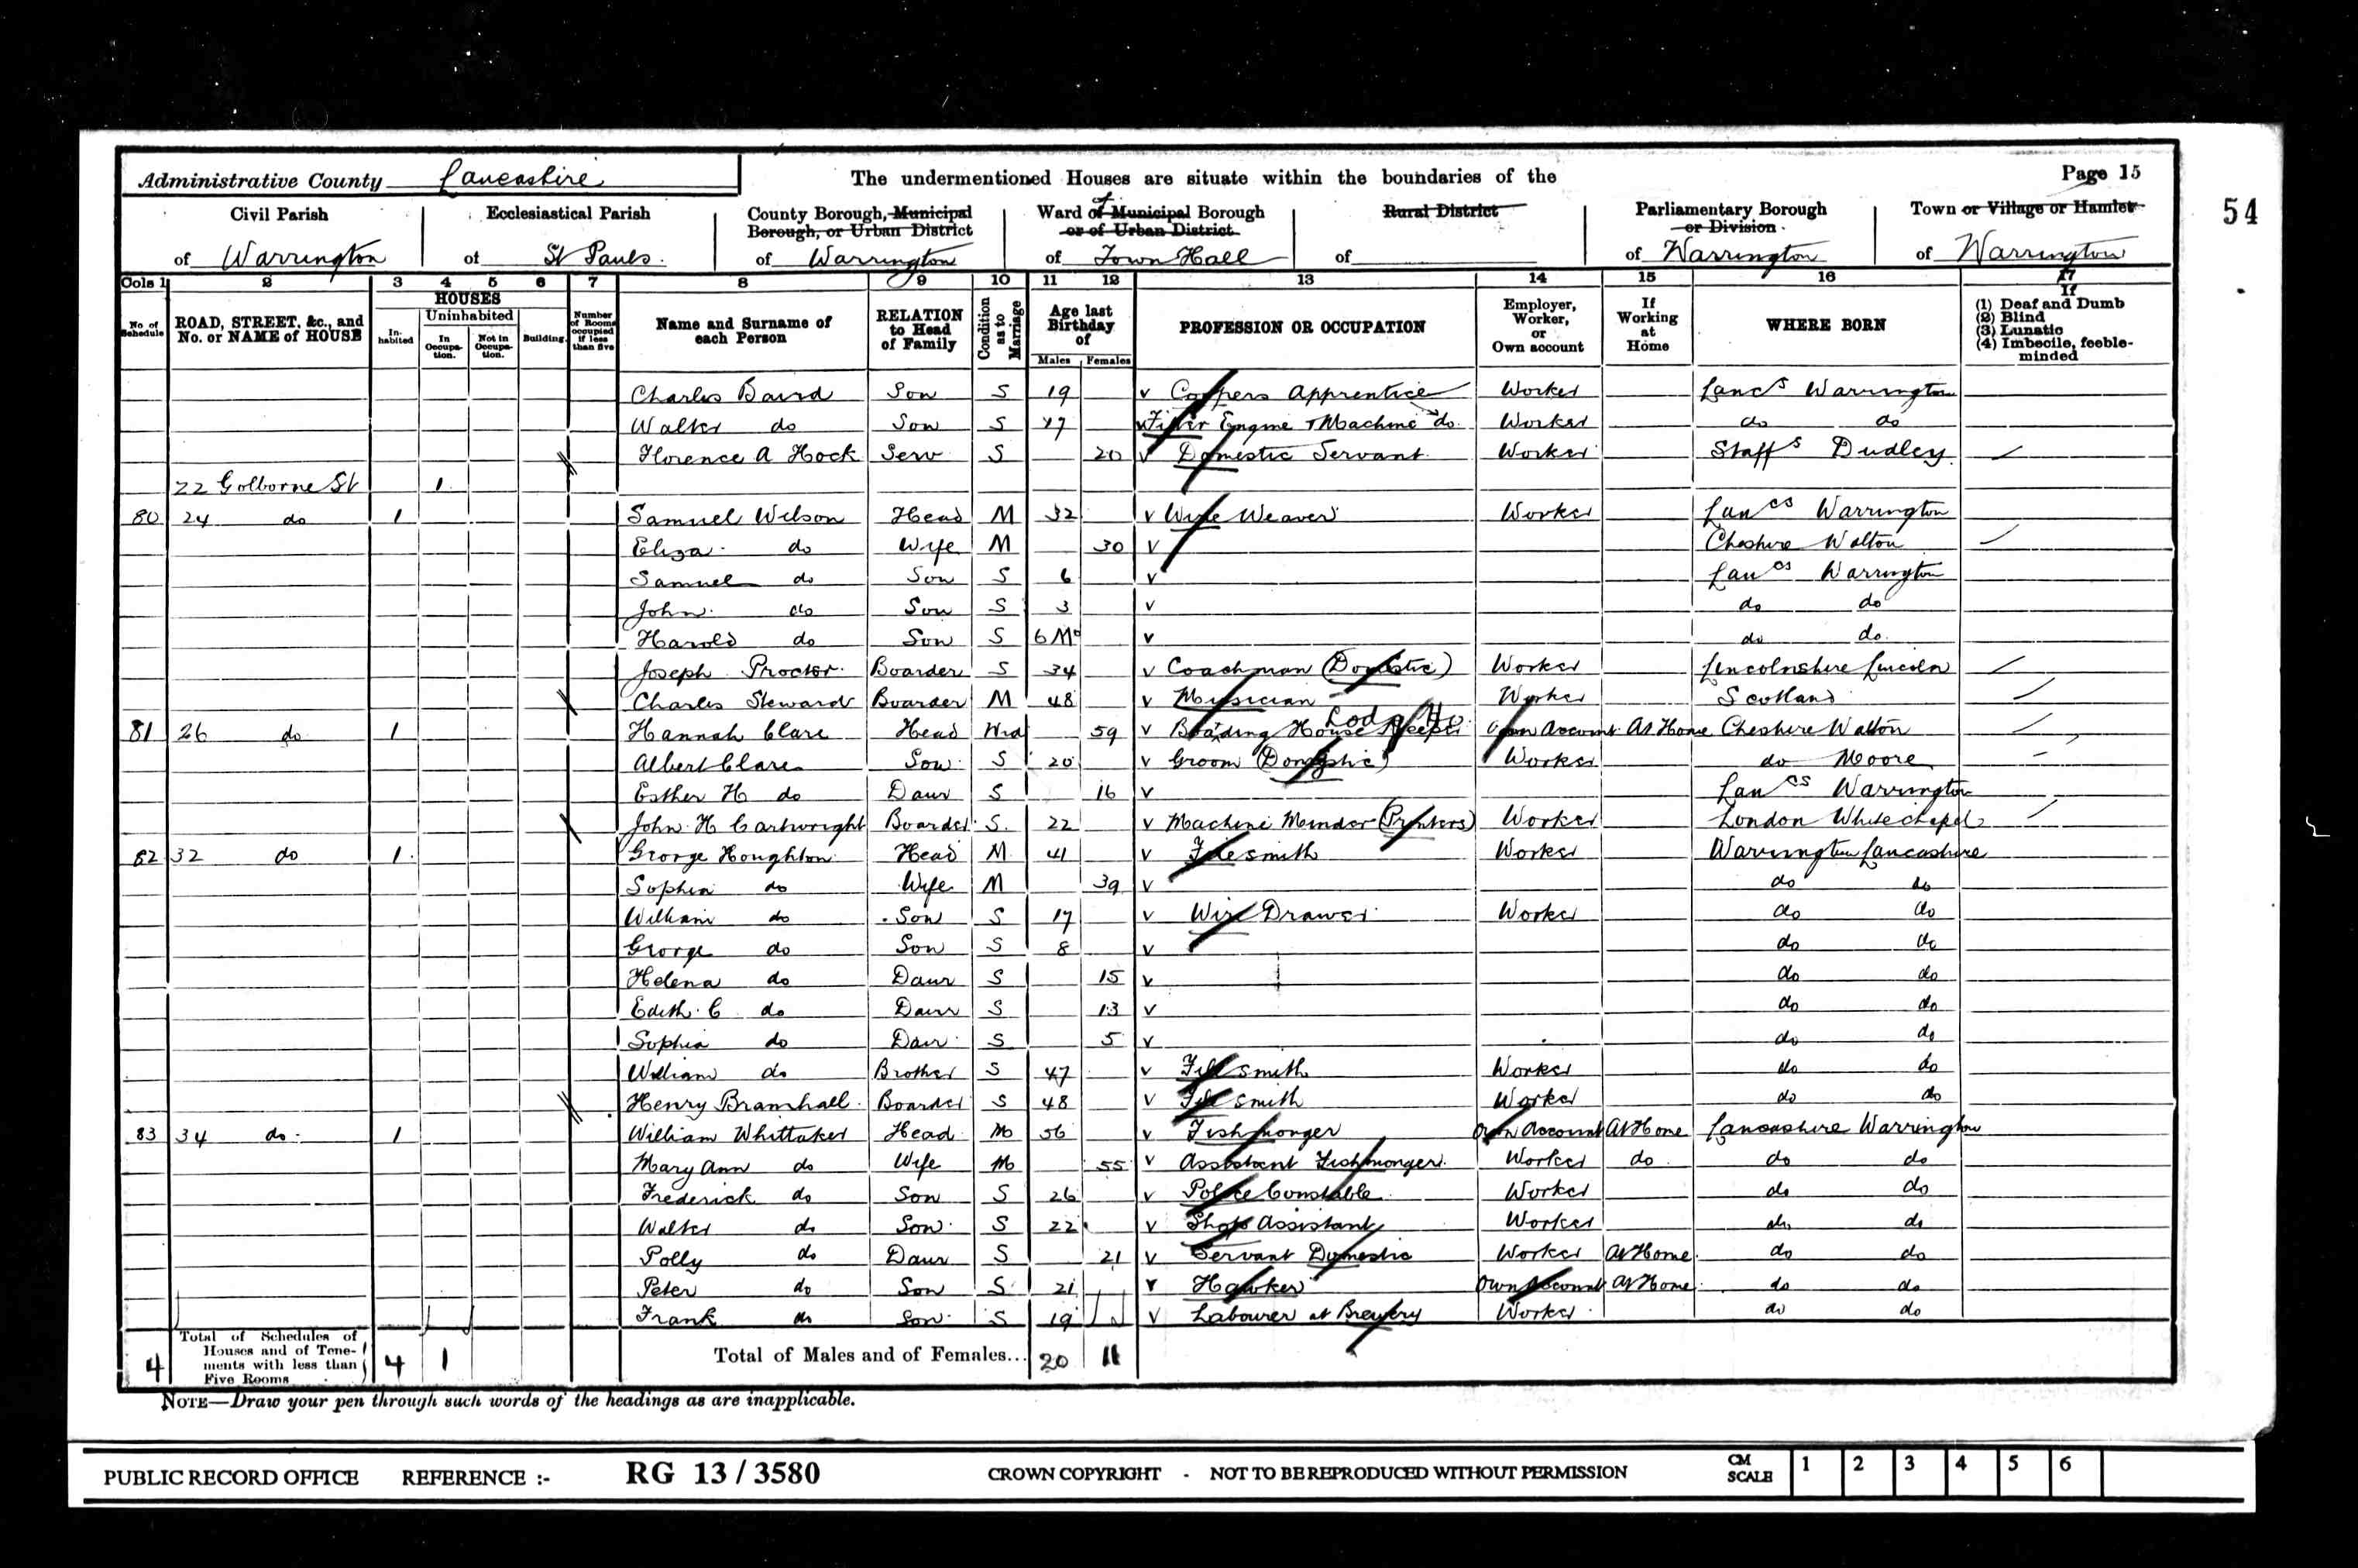 Administrative County Lancashire
The undermentioned Houses are situate within the boundaries of the
Page 15
54
Civil Parish of Warrington
Ecclesiastical Parish of St Pauls.
County Borough, Municipal Borough, or Urban District of Warrington
Ward of Municipal Borough or of Urban District of Town Hall
Rural District of
Parliamentary Borough or Division of Warrington
Town or Village or Hamlet of Warrington
Cols 1 2 3 4 5 6 7 8 9 10 11 12 13 14 15 16 17
No. of Schedule
ROAD, STREET, &c., and No. or NAME of HOUSE
HOUSES
In-habited
Uninhabited
In Occupa-tion.
Not in Occupa-tion.
Building.
Number of Rooms occupied if less than five
Name and Surname of each Person
RELATION to Head of Family
Condition as to Marriage
Age last Birthday of
Males Females
PROFESSION OR OCCUPATION
Employer, Worker, or Own account
If Working at Home
WHERE BORN
If
(1) Deaf and Dumb
(2) Blind
(3) Lunatic
(4) Imbecile, feeble-minded
Charles Baird Son S 19 Coopers Apprentice Worker Lancs Warrington
Walter do Son S 17 Fitter Engine & Machine do. Worker do do
Florence A Hock Serv S 20 Domestic Servant Worker Staffs Dudley
22 Golborne St 1
80 24 do 1 Samuel Wilson Head M 32 Wire Weaver Worker Lancs Warrington
Eliza do Wife M 30 Cheshire Walton
Samuel do Son S 6 Lancs Warrington
John do Son S 3 do do
Harold do Son S 6 Mo do do
Joseph Proctor Boarder S 34 Coachman (Domestic) Worker Lincolnshire Lincoln
Charles Steward Boarder M 48 Musician Worker Scotland
81 26 do 1 Hannah Clare Head Wid 59 Boarding House Keeper Lodg Ho. Own Account At Home Cheshire Walton
Albert Clare Son S 20 Groom (Domestic) Worker do Moore
Esther H do Daur S 16 Lancs Warrington
John H Cartwright Boarder S. 22 Machine Minder (Printers) Worker London Whitechapel
82 32 do 1 George Houghton Head M 41 Filesmith Worker Warrington Lancashire
Sophia do Wife M 39 do do
William do Son S 17 Wire Drawer Worker do do
George do Son S 8 do do
Helena do Daur S 15 do do
Edith C do Daur S 13 do do
Sophia do Daur S 5 do do
William do Brother S 47 File smith Worker do do
Henry Bramhall Boarder S 48 File smith Worker do do
83 34 do 1 William Whittaker Head M 56 Fishmonger Own Account At Home Lancashire Warrington
Mary Ann do Wife M 55 Assistant Fishmonger Worker do do do
Frederick do Son S 26 Police Constable Worker do do
Walter do Son S 22 Shop Assistant Worker do do
Polly do Daur S 21 Servant Domestic Worker At Home do do
Peter do Son S 21 Hawker Own Account At Home do do
Frank do Son S 19 Labourer at Brewery Worker do do
4 Total of Schedules of Houses and of Tene-ments with less than Five Rooms 4 1 Total of Males and of Females... 20 11
NOTE—Draw your pen through such words of the headings as are inapplicable.
PUBLIC RECORD OFFICE REFERENCE :- RG 13 / 3580 CROWN COPYRIGHT - NOT TO BE REPRODUCED WITHOUT PERMISSION CM SCALE 1 2 3 4 5 6